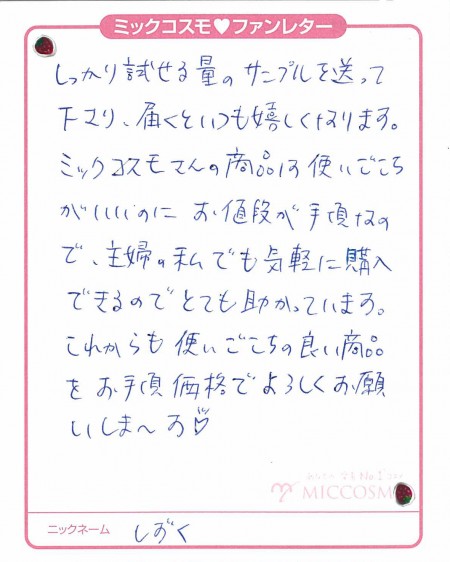 ミックコスモ♥ファンレター
しっかり試せる量のサンプルを送って
下さり、届くといつも嬉しくなります。
ミックコスモさんの商品は使いごこち
がいいのに お値段が手頃なの
で、主婦の私でも気軽に購入
できるのでとても助かっています。
これからも使いごこちの良い商品
をお手頃価格でよろしくお願
いしま〜す♡
No.1
MICCOSMO
ニックネーム しずく